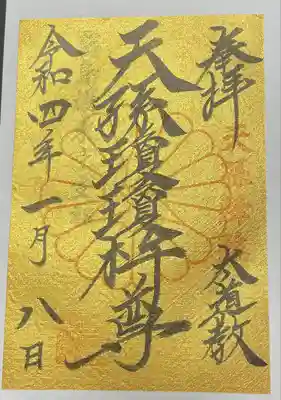 奉拝
太道教
天孫瓊瓊杵尊
令和四年一月八日